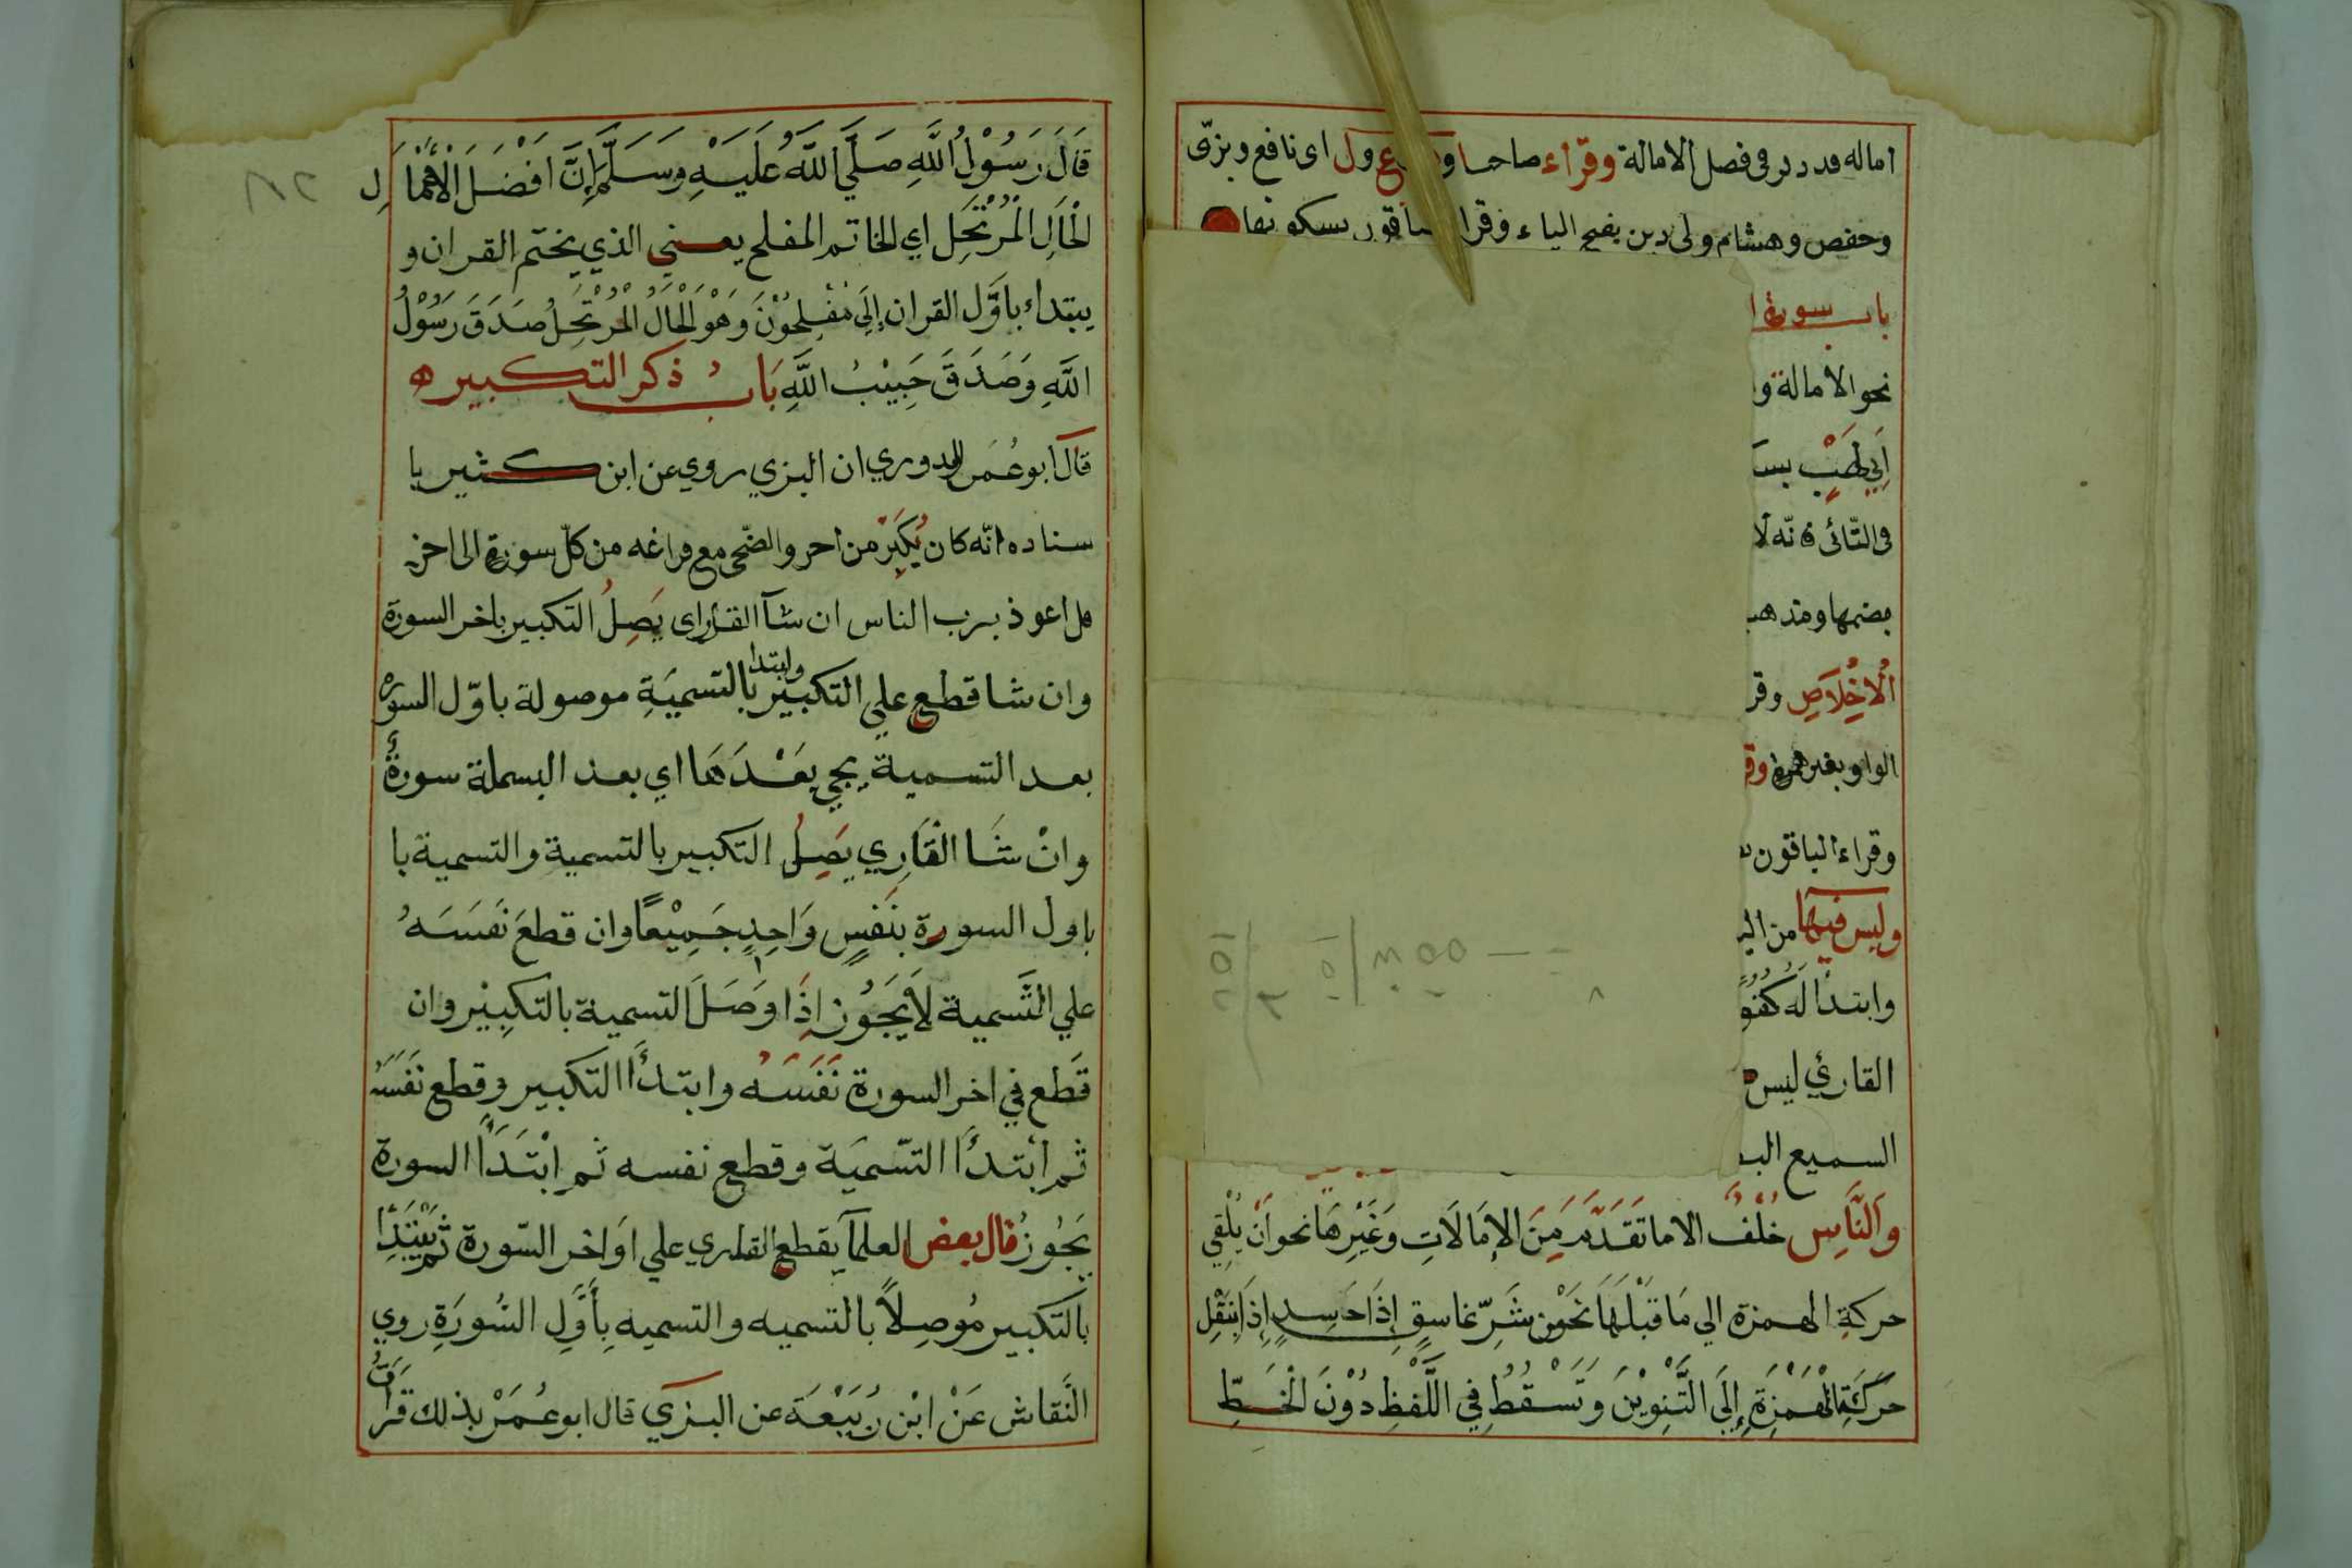 اماله قد دكر فى فصل الامالة وقراء صاحبا و ع ول اى نافع وبزّى
وحفص وهشام ولى دين بفتح الياء وقرا ساقون بسكونها
باب سورة ا
نحو الامالة و
اَبِي لَهَبٍ بسـ
فى الثّانى فانّه لا
بضمها ومذهب
اْلاِخْلَاصِ وقر
الواو بغير همزة وقر
وقراء الباقون
وليس فيها من اليـ
وابتدا لَهُ كُفُوً
القارئ ليس
السميع البـ
وَالنَّاسِ خُلْفٌ الا ما تَقَدَّمَ مِنَ الاِمَالَاتِ وَغَيْرِهَا نحو اَنْ يُلْقِي
حركةِ الهمزة الي مَا قَبْلَهَا نَحْوْ مِن شَرِّ غاسقٍ إِذَا حَاسِدٍ إِذَ اِنْتَقِلْ
حَرَكَةِ الْهَمْزَةِ إِلَى التَّنِوْيْنَ وَتَسْقُطُ فِي اللَّفْظِ دُوْنَ الْخَطِّ
قَالَ رَسُوْلُ اللَّهِ صَلَّي اللَّهُ عَلَيْهِ وَسَلَّمَ إِنَّ اَفْضَلَ الْأَعْمَالِ
الْحَالِ الْمُرْتَحِلِ اي الخاتم المفلح يعنى الذي يختم القران و
يبتداء باَوَّل القران إِلَى مُفْلِحُوْنَ وَهْوَ الْحَالُ الْمُرْتَحِلُ صَدَقَ رَسُوْلُ
اللَّهِ وَصَدَقَ حَبِيْبُ اللَّهِ بَابُ ذكر التكبير ه
قال ابو عُمَر الدوري ان البزي روي عن ابن كثير با
سناده انّه كان يُكَبِّرْ من اخر والضّحى مع فراغه من كلّ سورة الى اخر
قل اعوذ برب الناس ان شآ القارى يَصِلُ التكبير باخر السورة
وان شا قطع علي التكبير وابتدا بالتسميَةِ موصولة باوّل السوره
بعد التسمية يجي بَعْدَهَا اي بعد البسملة سورةٌ
وانْ شَا القَارِي يَصِلُ التكبير بالتسمية والتسمية با
باول السورة بنَفسٍ وَاحِدٍ جَمِيْعًا وان قطعَ نَفَسَهُ
علي التَّسمية لاَ يَجُوْز اِذَا وَصَلَ التسمية بالتكبِيْر وان
قَطع في اخر السورة نَفَسَهُ وابتدأ التكبير وقطع نَفَسَهُ
ثم اْبتدأَ التّسميَة وقطع نفسه ثم اِبْتَدَأَ السورة
يَجُوزُ قال بعض العلمآ يقطع القارِي علي اَوَاخر السّورة ثم يَبْتَدِأُ
بالتكبير مُوصِلاً بالتسميه والتسميه بِأَوَّلِ السُورَةِ روي
النَقاش عَنْ ابْن رَبِيْعَة عن البزي قال ابو عُمَرْ بذلك قَرَأتُ